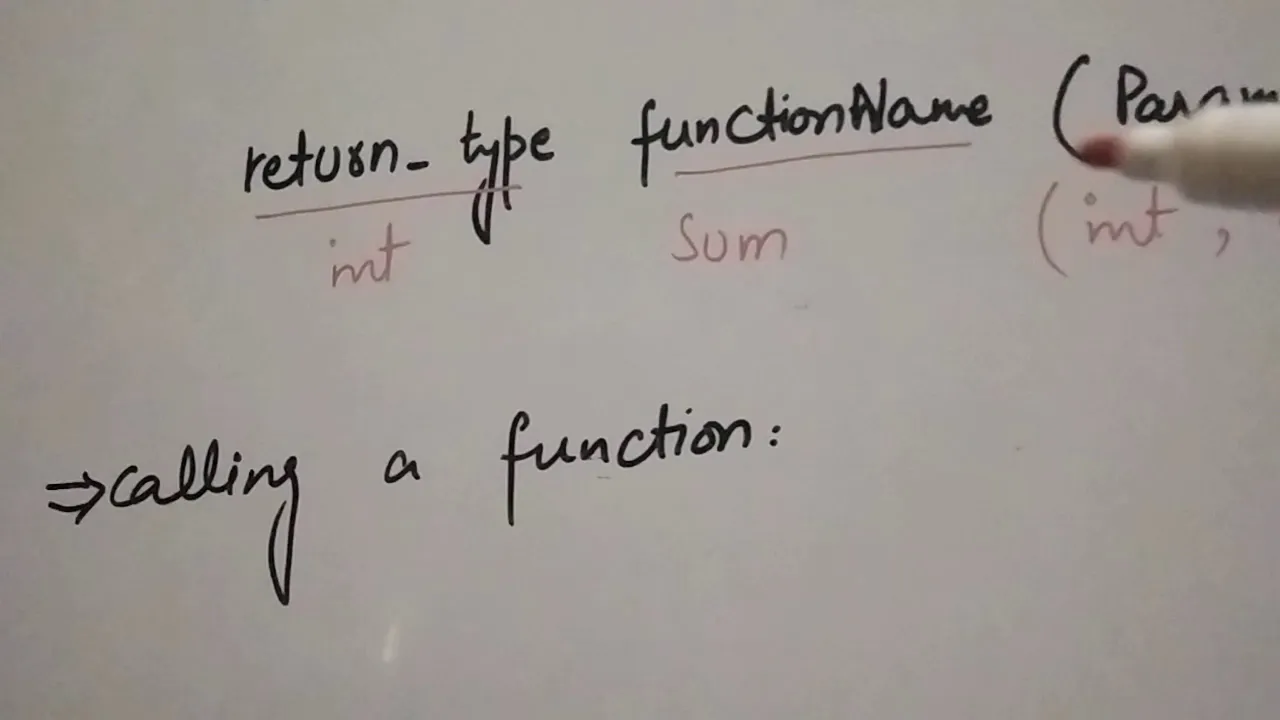 return_type functionName (
int sum (int,
⇒ calling a function: